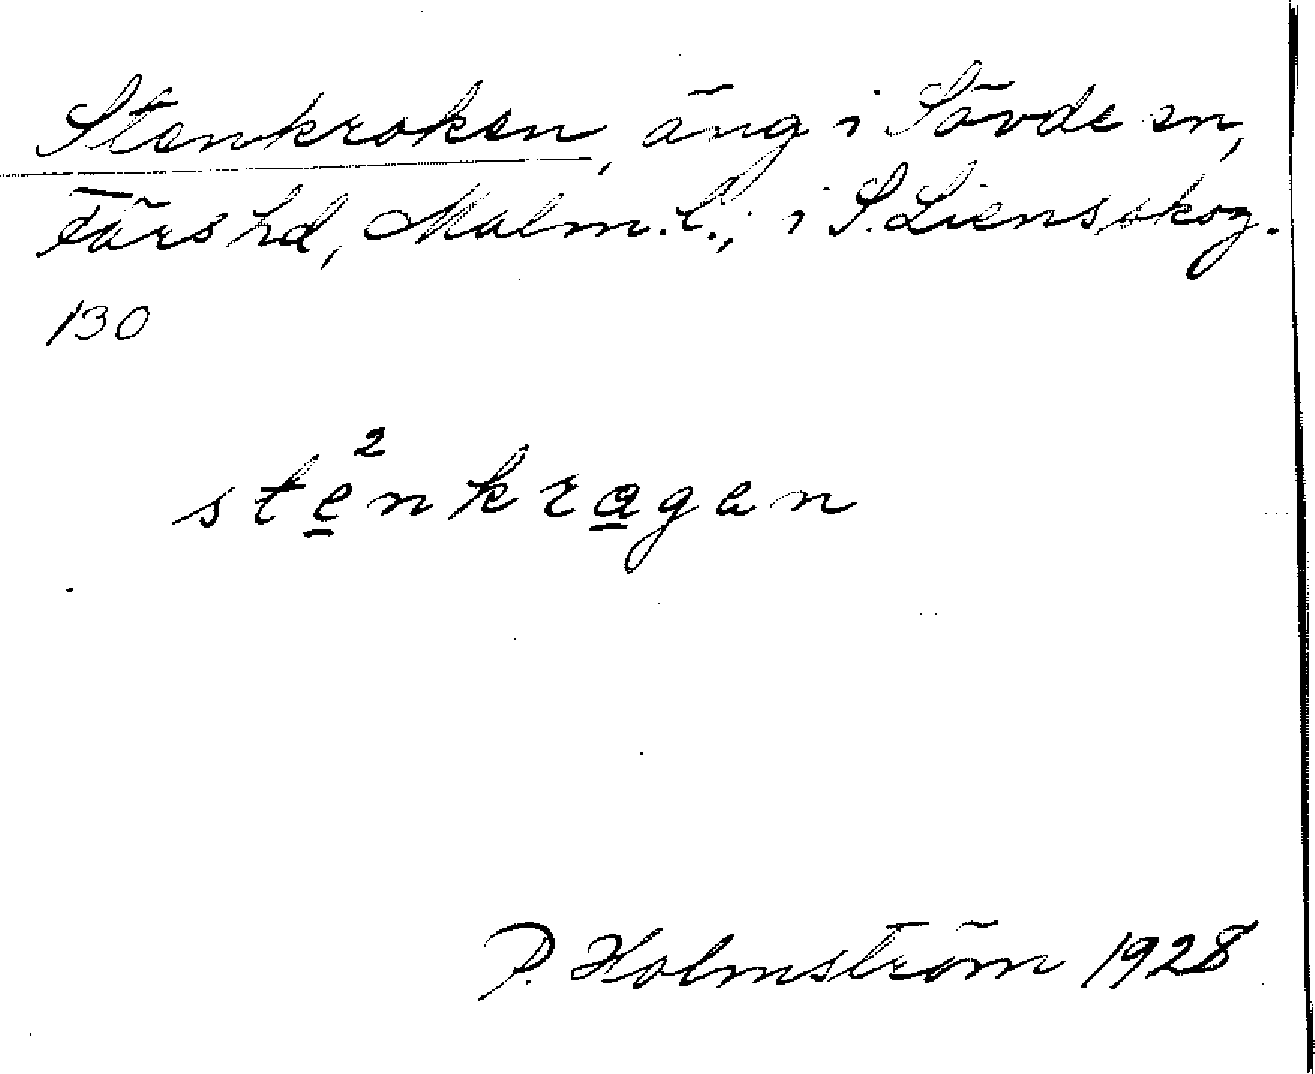 Stenkroken, äng i Sövde sn,
Färs hd, Malm. l., i S. Liens skog.
130
ste̲²nkra̲gen
P. Holmström 1928